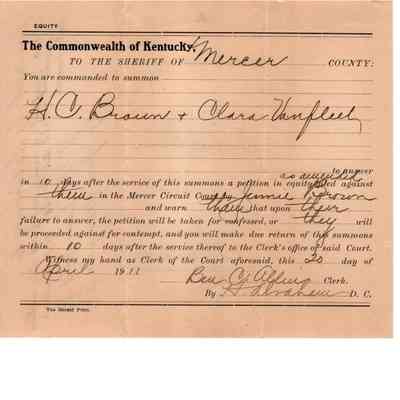 EQUITY
The Commonwealth of Kentucky,
TO THE SHERIFF OF Mercer COUNTY:
You are commanded to summon
H. C. Brown & Clara Vanfleet
to answer
as amended
in 10 days after the service of this summons a petition in equity filed against
them in the Mercer Circuit Court by Jimmie Brown
and warn them that upon their
failure to answer, the petition will be taken for confessed, or they will
be proceeded against for contempt, and you will make due return of this summons
within 10 days after the service thereof to the Clerk's office of said Court.
Witness my hand as Clerk of the Court aforesaid, this 20 day of
April 1911
Ben C. Clerk.
By D. C.
The Herald Print.